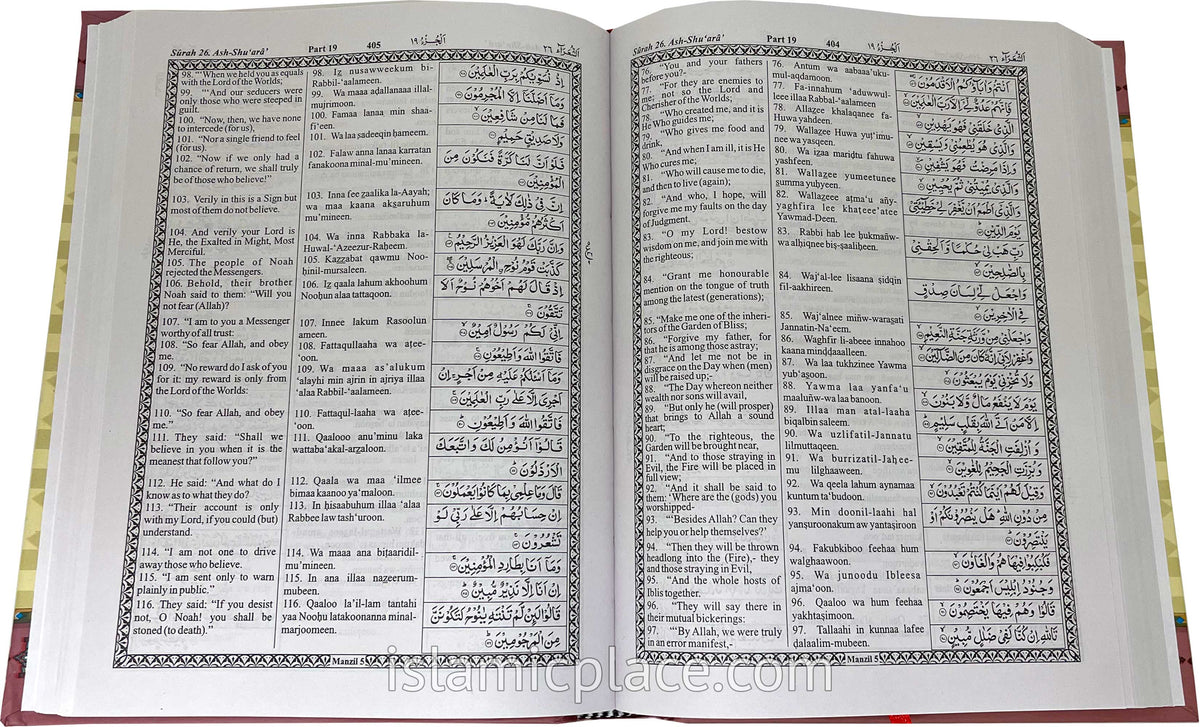 Sûrah 26. Ash-Shu‘arâ’
Part 19
404
اَلْجُزْءُ ١٩
اَلشُّعَرَآء ٢٦
76. “You and your fathers
before you?-
77. “For they are enemies to
me; not so the Lord and
Cherisher of the Worlds;
78. “Who created me, and it is
He Who guides me;
79. “Who gives me food and
drink,
80. “And when I am ill, it is He
Who cures me;
81. “Who will cause me to die,
and then to live (again);
82. “And who, I hope, will
forgive me my faults on the day
of Judgment.
83. “O my Lord! bestow
wisdom on me, and join me with
the righteous;
84. “Grant me honourable
mention on the tongue of truth
among the latest (generations);
85. “Make me one of the inheri-
tors of the Garden of Bliss;
86. “Forgive my father, for
that he is among those astray;
87. “And let me not be in
disgrace on the Day when (men)
will be raised up;-
88. “The Day whereon neither
wealth nor sons will avail,
89. “But only he (will prosper)
that brings to Allah a sound
heart;
90. “To the righteous, the
Garden will be brought near,
91. “And to those straying in
Evil, the Fire will be placed in
full view;
92. “And it shall be said to
them: ‘Where are the (gods) you
worshipped-
93. “‘Besides Allah? Can they
help you or help themselves?’
94. “Then they will be thrown
headlong into the (Fire),- they
and those straying in Evil,
95. “And the whole hosts of
Iblis together.
96. “They will say there in
their mutual bickerings:
97. “‘By Allah, we were truly
in an error manifest,-
76. Antum wa aabaaa’uku-
mul-aqdamoon.
77. Fa-innahum ‘aduwwul-
leee illaa Rabbal-‘aalameen
78. Allazee khalaqanee fa-
Huwa yahdeen.
79. Wallazee Huwa yuṭ‘imu-
nee wa yasqeen.
80. Wa iẕaa mariḍtu fahuwa
yashfeen.
81. Wallazee yumeetunee
ṡumma yuḥyeen.
82. Wallazeee aṭma‘u añy-
yaghfira lee khaṭeee’atee
Yawmad-Deen.
83. Rabbi hab lee ḥukmañw-
wa alḥiqnee biṣ-ṣaaliḥeen.
84. Waj‘al-lee lisaana ṣidqin
fil-aakhireen.
85. Waj‘alnee miñw-waraṡati
Jannatin-Na‘eem.
86. Waghfir li-abeee innahoo
kaana minḍḍaaalleen.
87. Wa laa tukhzinee Yawma
yub‘aṡoon.
88. Yawma laa yanfa‘u
maaluñw-wa laa banoon.
89. Illaa man atal-laaha
biqalbin saleem.
90. Wa uzlifatil-Jannatu
lilmuttaqeen.
91. Wa burrizatil-Jaḥee-
mu lilghaaween.
92. Wa qeela lahum aynamaa
kuntum ta‘budoon.
93. Min doonil-laahi hal
yanṣuroonakum aw yantaṣiroon
94. Fakubkiboo feehaa hum
walghaawoon.
95. Wa junoodu Ibleesa
ajma‘oon.
96. Qaaloo wa hum feehaa
yakhtaṣimoon.
97. Tallaahi in kunnaa lafee
ḍalaalim-mubeen.
اَنْتُمْ وَاٰبَآؤُكُمُ الْاَقْدَمُوْنَ
فَاِنَّهُمْ عَدُوٌّ لِّيْٓ اِلَّا رَبَّ الْعٰلَمِيْنَ
الَّذِيْ خَلَقَنِيْ فَهُوَ يَهْدِيْنِ
وَالَّذِيْ هُوَ يُطْعِمُنِيْ وَيَسْقِيْنِ
وَاِذَا مَرِضْتُ فَهُوَ يَشْفِيْنِ
وَالَّذِيْ يُمِيْتُنِيْ ثُمَّ يُحْيِيْنِ
وَالَّذِيْٓ اَطْمَعُ اَنْ يَّغْفِرَ لِيْ خَطِيْٓئَتِيْ
يَوْمَ الدِّيْنِ
رَبِّ هَبْ لِيْ حُكْمًا وَّاَلْحِقْنِيْ
بِالصّٰلِحِيْنَ
وَاجْعَلْ لِّيْ لِسَانَ صِدْقٍ
فِي الْاٰخِرِيْنَ
وَاجْعَلْنِيْ مِنْ وَّرَثَةِ جَنَّةِ النَّعِيْمِ
وَاغْفِرْ لِاَبِيْٓ اِنَّهٗ كَانَ مِنَ الضَّآلِّيْنَ
وَلَا تُخْزِنِيْ يَوْمَ يُبْعَثُوْنَ
يَوْمَ لَا يَنْفَعُ مَالٌ وَّلَا بَنُوْنَ
اِلَّا مَنْ اَتَى اللّٰهَ بِقَلْبٍ سَلِيْمٍ
وَاُزْلِفَتِ الْجَنَّةُ لِلْمُتَّقِيْنَ
وَبُرِّزَتِ الْجَحِيْمُ لِلْغٰوِيْنَ
وَقِيْلَ لَهُمْ اَيْنَمَا كُنْتُمْ تَعْبُدُوْنَ
مِنْ دُوْنِ اللّٰهِ هَلْ يَنْصُرُوْنَكُمْ اَوْ
يَنْتَصِرُوْنَ
فَكُبْكِبُوْا فِيْهَا هُمْ وَالْغَاوٗنَ
وَجُنُوْدُ اِبْلِيْسَ اَجْمَعُوْنَ
قَالُوْا وَهُمْ فِيْهَا يَخْتَصِمُوْنَ
تَاللّٰهِ اِنْ كُنَّا لَفِيْ ضَلٰلٍ مُّبِيْنٍ
Manzil 5
Sûrah 26. Ash-Shu‘arâ’
Part 19
405
اَلْجُزْءُ ١٩
اَلشُّعَرَآء ٢٦
98. “‘When we held you as equals
with the Lord of the Worlds;
99. “‘And our seducers were
only those who were steeped in
guilt.
100. “‘Now, then, we have none
to intercede (for us),
101. “‘Nor a single friend to feel
(for us).
102. “‘Now if we only had a
chance of return, we shall truly
be of those who believe!’”
103. Verily in this is a Sign but
most of them do not believe.
104. And verily your Lord is
He, the Exalted in Might, Most
Merciful.
105. The people of Noah
rejected the Messengers.
106. Behold, their brother
Noah said to them: “Will you
not fear (Allah)?
107. “I am to you a Messenger
worthy of all trust:
108. “So fear Allah, and obey
me.
109. “No reward do I ask of you
for it: my reward is only from
the Lord of the Worlds:
110. “So fear Allah, and obey
me.”
111. They said: “Shall we
believe in you when it is the
meanest that follow you?”
112. He said: “And what do I
know as to what they do?
113. “Their account is only
with my Lord, if you could (but)
understand.
114. “I am not one to drive
away those who believe.
115. “I am sent only to warn
plainly in public.”
116. They said: “If you desist
not, O Noah! you shall be
stoned (to death).”
98. Iẕ nusawweekum bi-
Rabbil-‘aalameen.
99. Wa maaa aḍallanaaa illal-
mujrimoon.
100. Famaa lanaa min shaa-
fi‘een.
101. Wa laa ṣadeeqin ḥameem.
102. Falaw anna lanaa karratan
fanakoona minal-mu’mineen.
103. Inna fee ẕaalika la-Aayah;
wa maa kaana akṡaruhum
mu’mineen.
104. Wa inna Rabbaka la-
Huwal-‘Azeezur-Raḥeem.
105. Kaẕẕabat qawmu Noo-
ḥinil-mursaleen.
106. Iẕ qaala lahum akhoohum
Nooḥun alaa tattaqoon.
107. Innee lakum Rasoolun
ameen.
108. Fattaqullaaha wa aṭee-
‘oon.
109. Wa maaa as’alukum
‘alayhi min ajrin in ajriya illaa
‘alaa Rabbil-‘aalameen.
110. Fattaqul-laaha wa aṭee-
‘oon.
111. Qaalooo anu’minu laka
wattaba‘akal-arẕaloon.
112. Qaala wa maa ‘ilmee
bimaa kaanoo ya‘maloon.
113. In ḥisaabuhum illaa ‘alaa
Rabbee law tash‘uroon.
114. Wa maaa ana biṭaaridil-
mu’mineen.
115. In ana illaa naẕeerum-
mubeen.
116. Qaaloo la’il-lam tantahi
yaa Nooḥu latakoonanna minal-
marjoomeen.
اِذْ نُسَوِّيْكُمْ بِرَبِّ الْعٰلَمِيْنَ
وَمَآ اَضَلَّنَآ اِلَّا الْمُجْرِمُوْنَ
فَمَا لَنَا مِنْ شَافِعِيْنَ
وَلَا صَدِيْقٍ حَمِيْمٍ
فَلَوْ اَنَّ لَنَا كَرَّةً فَنَكُوْنَ مِنَ
الْمُؤْمِنِيْنَ
اِنَّ فِيْ ذٰلِكَ لَاٰيَةً ؕ وَمَا كَانَ
اَكْثَرُهُمْ مُّؤْمِنِيْنَ
وَاِنَّ رَبَّكَ لَهُوَ الْعَزِيْزُ الرَّحِيْمُ
كَذَّبَتْ قَوْمُ نُوْحِ ِۨالْمُرْسَلِيْنَ
اِذْ قَالَ لَهُمْ اَخُوْهُمْ نُوْحٌ اَلَا
تَتَّقُوْنَ
اِنِّيْ لَكُمْ رَسُوْلٌ اَمِيْنٌ
فَاتَّقُوا اللّٰهَ وَاَطِيْعُوْنِ
وَمَآ اَسْـَٔلُكُمْ عَلَيْهِ مِنْ اَجْرٍ ۚ اِنْ
اَجْرِيَ اِلَّا عَلٰى رَبِّ الْعٰلَمِيْنَ
فَاتَّقُوا اللّٰهَ وَاَطِيْعُوْنِ
قَالُوْٓا اَنُؤْمِنُ لَكَ وَاتَّبَعَكَ
الْاَرْذَلُوْنَ
قَالَ وَمَا عِلْمِيْ بِمَا كَانُوْا يَعْمَلُوْنَ
اِنْ حِسَابُهُمْ اِلَّا عَلٰى رَبِّيْ لَوْ
تَشْعُرُوْنَ
وَمَآ اَنَا بِطَارِدِ الْمُؤْمِنِيْنَ
اِنْ اَنَا اِلَّا نَذِيْرٌ مُّبِيْنٌ
قَالُوْا لَئِنْ لَّمْ تَنْتَهِ يٰنُوْحُ لَتَكُوْنَنَّ
مِنَ الْمَرْجُوْمِيْنَ
Manzil 5
islamicplace.com